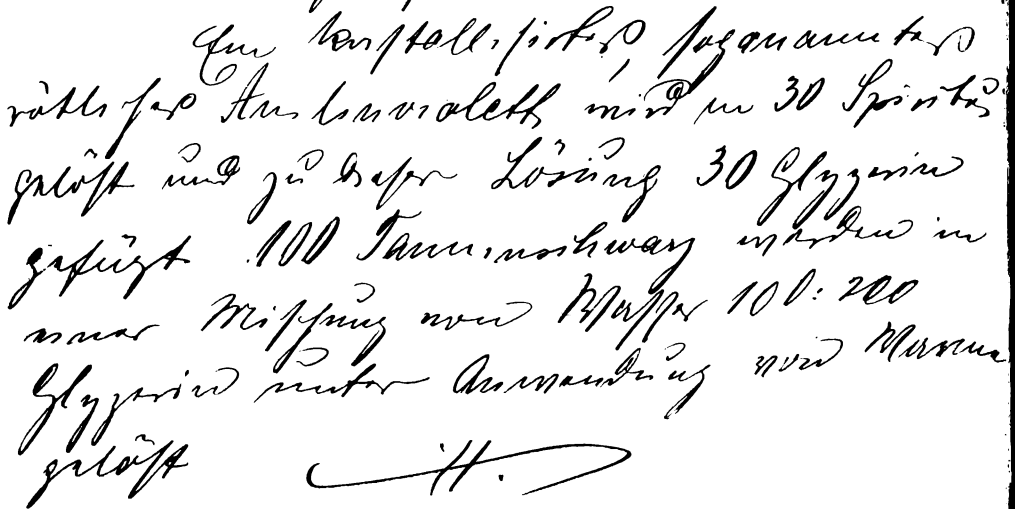 Ein kristallisirtes, sogenanntes
rötliches Anilinviolett wird in 30 Spiritus
gelöst und zu dieser Lösung 30 Glyzerin
gefügt. 100 Tanninschwarz werden in
einer Mischung von Wasser 100:200
Glyzerin unter Anwendung von Wärme
gelöst H.